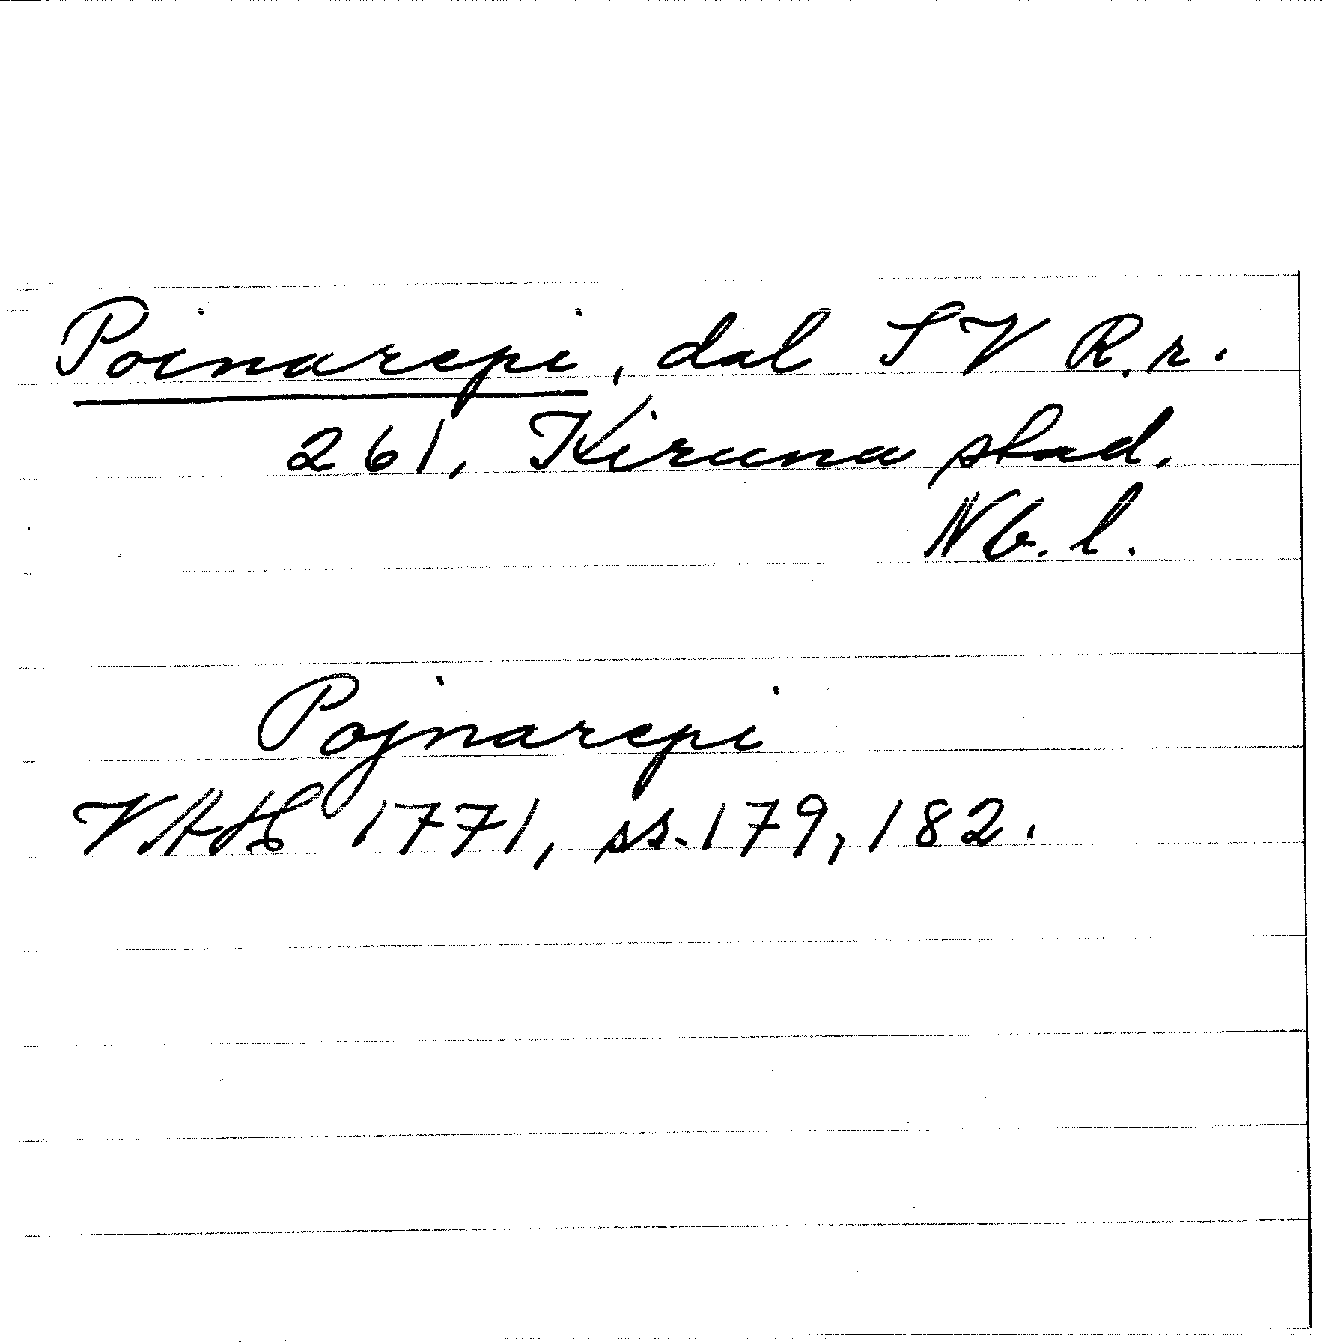 Poinarepi, dal SV R.r.
261, Kiruna stad.
Nb. l.
Pojnarepi
VAH 1771, ss. 179, 182.